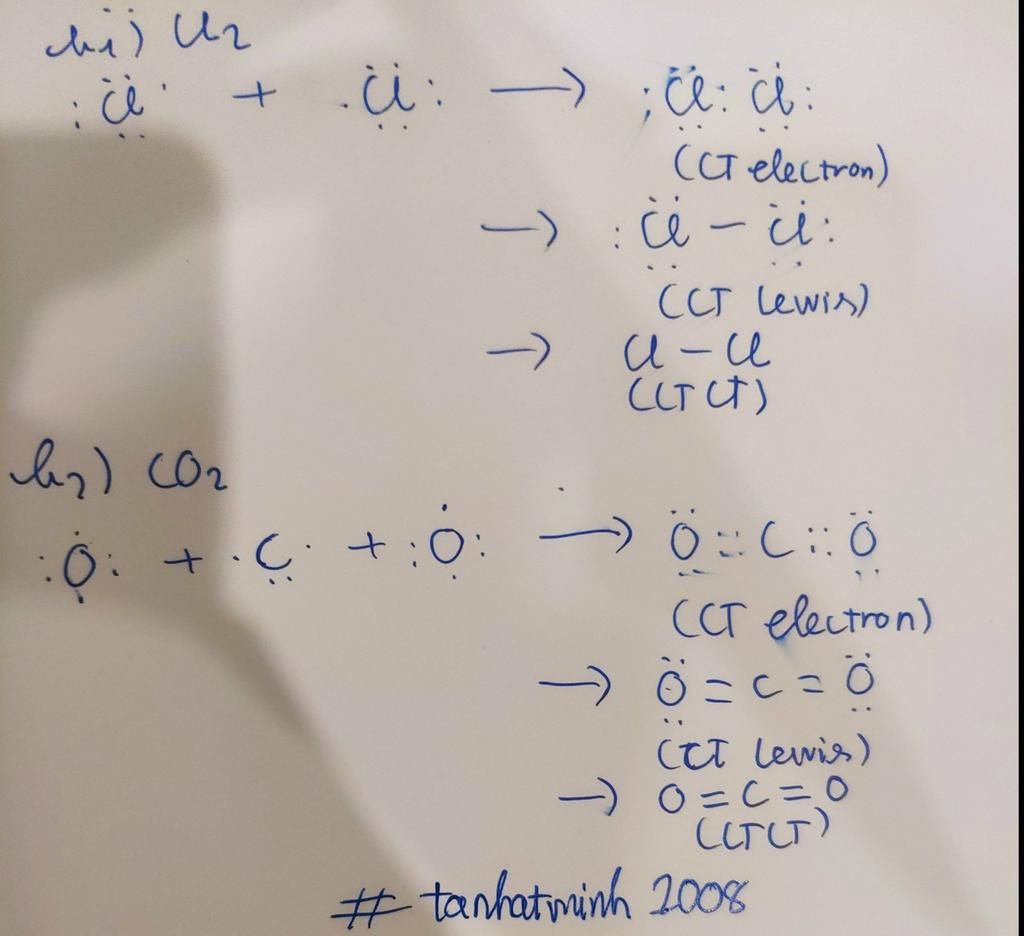 b1) Cl2
:C̤̈l· + ·C̤̈l: → :C̤̈l:C̤̈l:
(CT electron)
→ :C̤̈l – C̤̈l:
(CT Lewis)
→ Cl – Cl
(CTCT)
b2) CO2
:Ọ̇: + ·C̤· + :Ọ̇: → Ö̤::C::Ö̤
(CT electron)
→ Ö̤ = C = Ö̤
(CT Lewis)
→ O = C = O
(CTCT)
# tanhatminh 2008